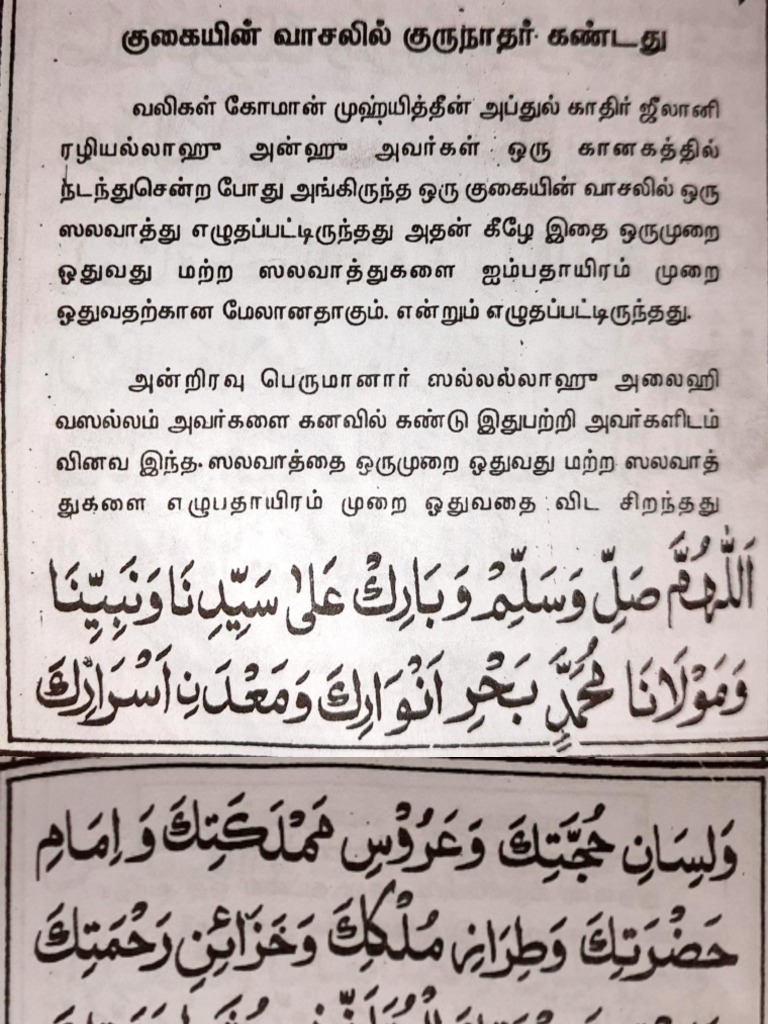 குகையின் வாசலில் குருநாதர் கண்டது
வலிகள் கோமான் முஹ்யித்தீன் அப்துல் காதிர் ஜீலானி
ரழியல்லாஹு அன்ஹு அவர்கள் ஒரு கானகத்தில்
நடந்துசென்ற போது அங்கிருந்த ஒரு குகையின் வாசலில் ஒரு
ஸலவாத்து எழுதப்பட்டிருந்தது அதன் கீழே இதை ஒருமுறை
ஒதுவது மற்ற ஸலவாத்துகளை ஐம்பதாயிரம் முறை
ஒதுவதற்கான மேலானதாகும். என்றும் எழுதப்பட்டிருந்தது.
அன்றிரவு பெருமானார் ஸல்லல்லாஹு அலைஹி
வஸல்லம் அவர்களை கனவில் கண்டு இதுபற்றி அவர்களிடம்
வினவ இந்த. ஸலவாத்தை ஒருமுறை ஒதுவது மற்ற ஸலவாத்
துகளை எழுபதாயிரம் முறை ஓதுவதை விட சிறந்தது
اَللّٰهُمَّ صَلِّ وَسَلِّمْ وَبَارِكْ عَلٰى سَيِّدِنَا وَنَبِيِّنَا
وَمَوْلَانَا مُحَمَّدٍ بَحْرِ اَنْوَارِكَ وَمَعْدَنِ اَسْرَارِكَ
وَلِسَانِ حُجَّتِكَ وَعَرُوْسِ مَمْلَكَتِكَ وَاِمَامِ
حَضْرَتِكَ وَطِرَازِ مُلْكِكَ وَخَزَائِنِ رَحْمَتِكَ